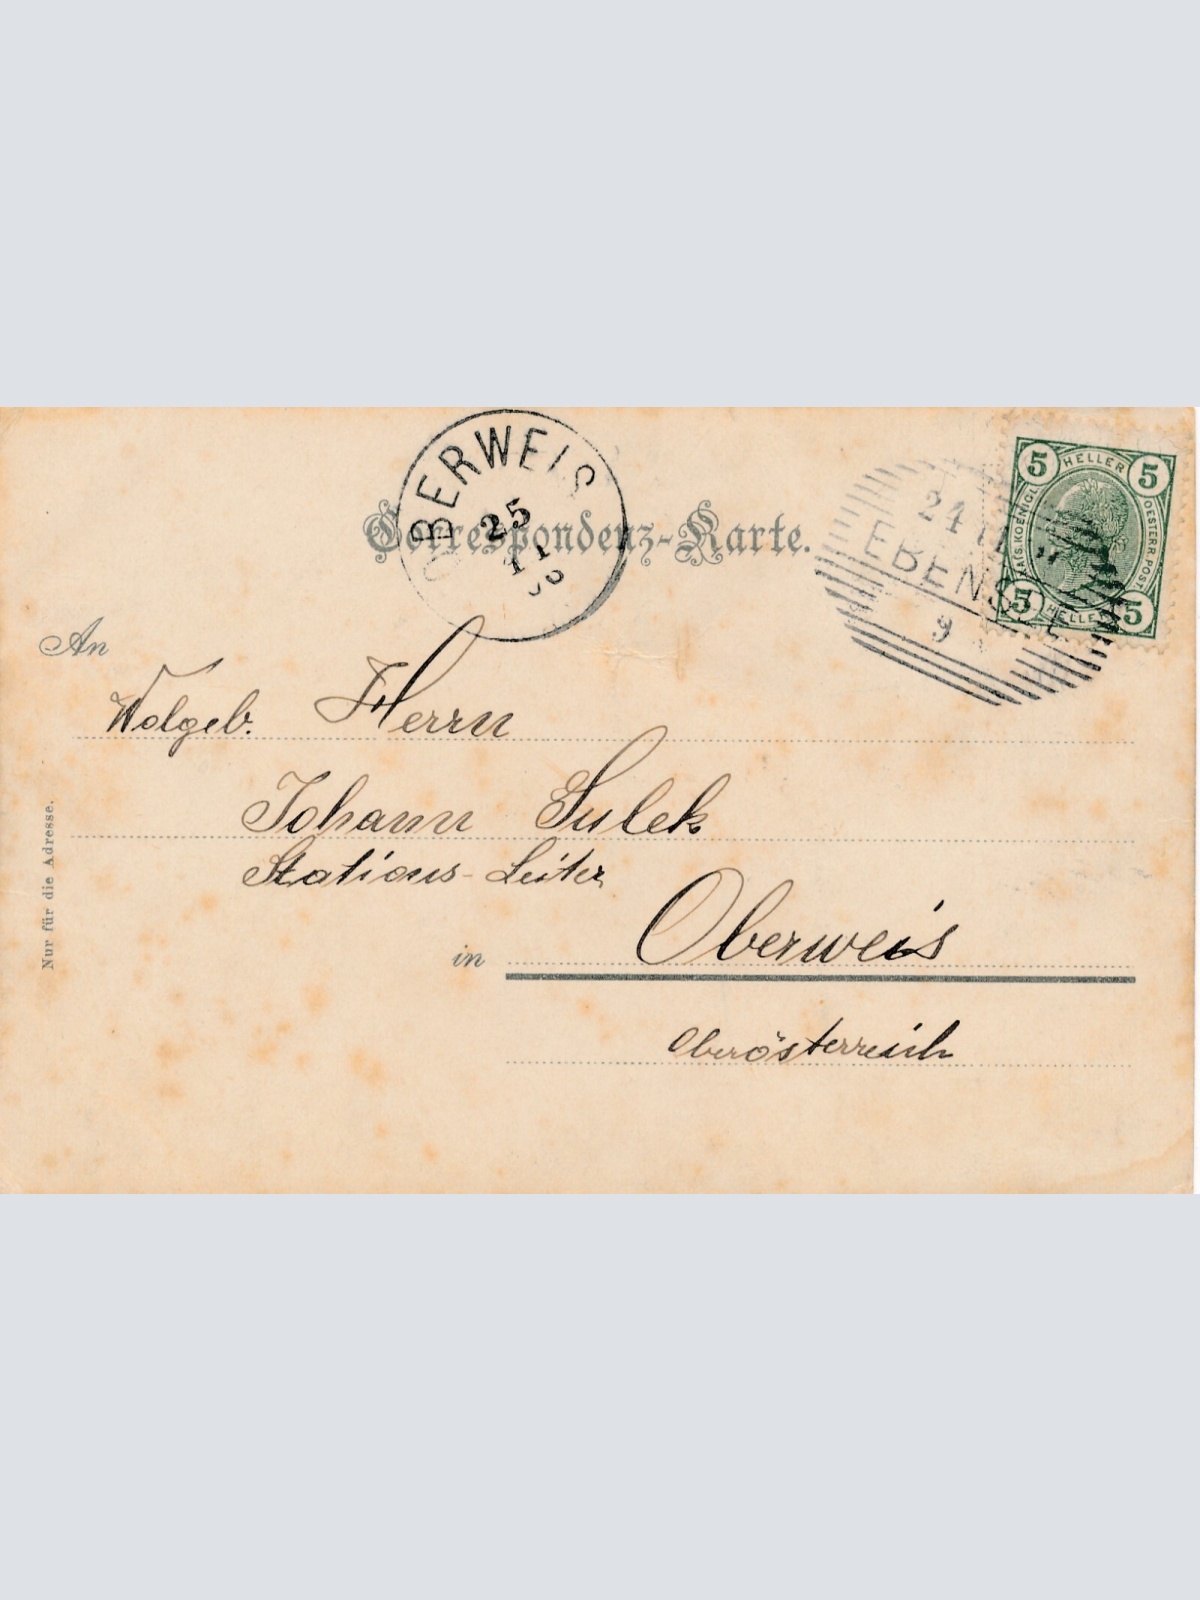 Correspondenz-Karte.
OBERWEIS
25
11
24
EBENS
9
5 HELLER 5
KAIS. KOENIGL. OESTERR. POST
5 HELLER 5
An
Wolgeb. Herrn
Johann Sulek
Stations-Leiter
in Oberweis
Oberösterreich
Nur für die Adresse.